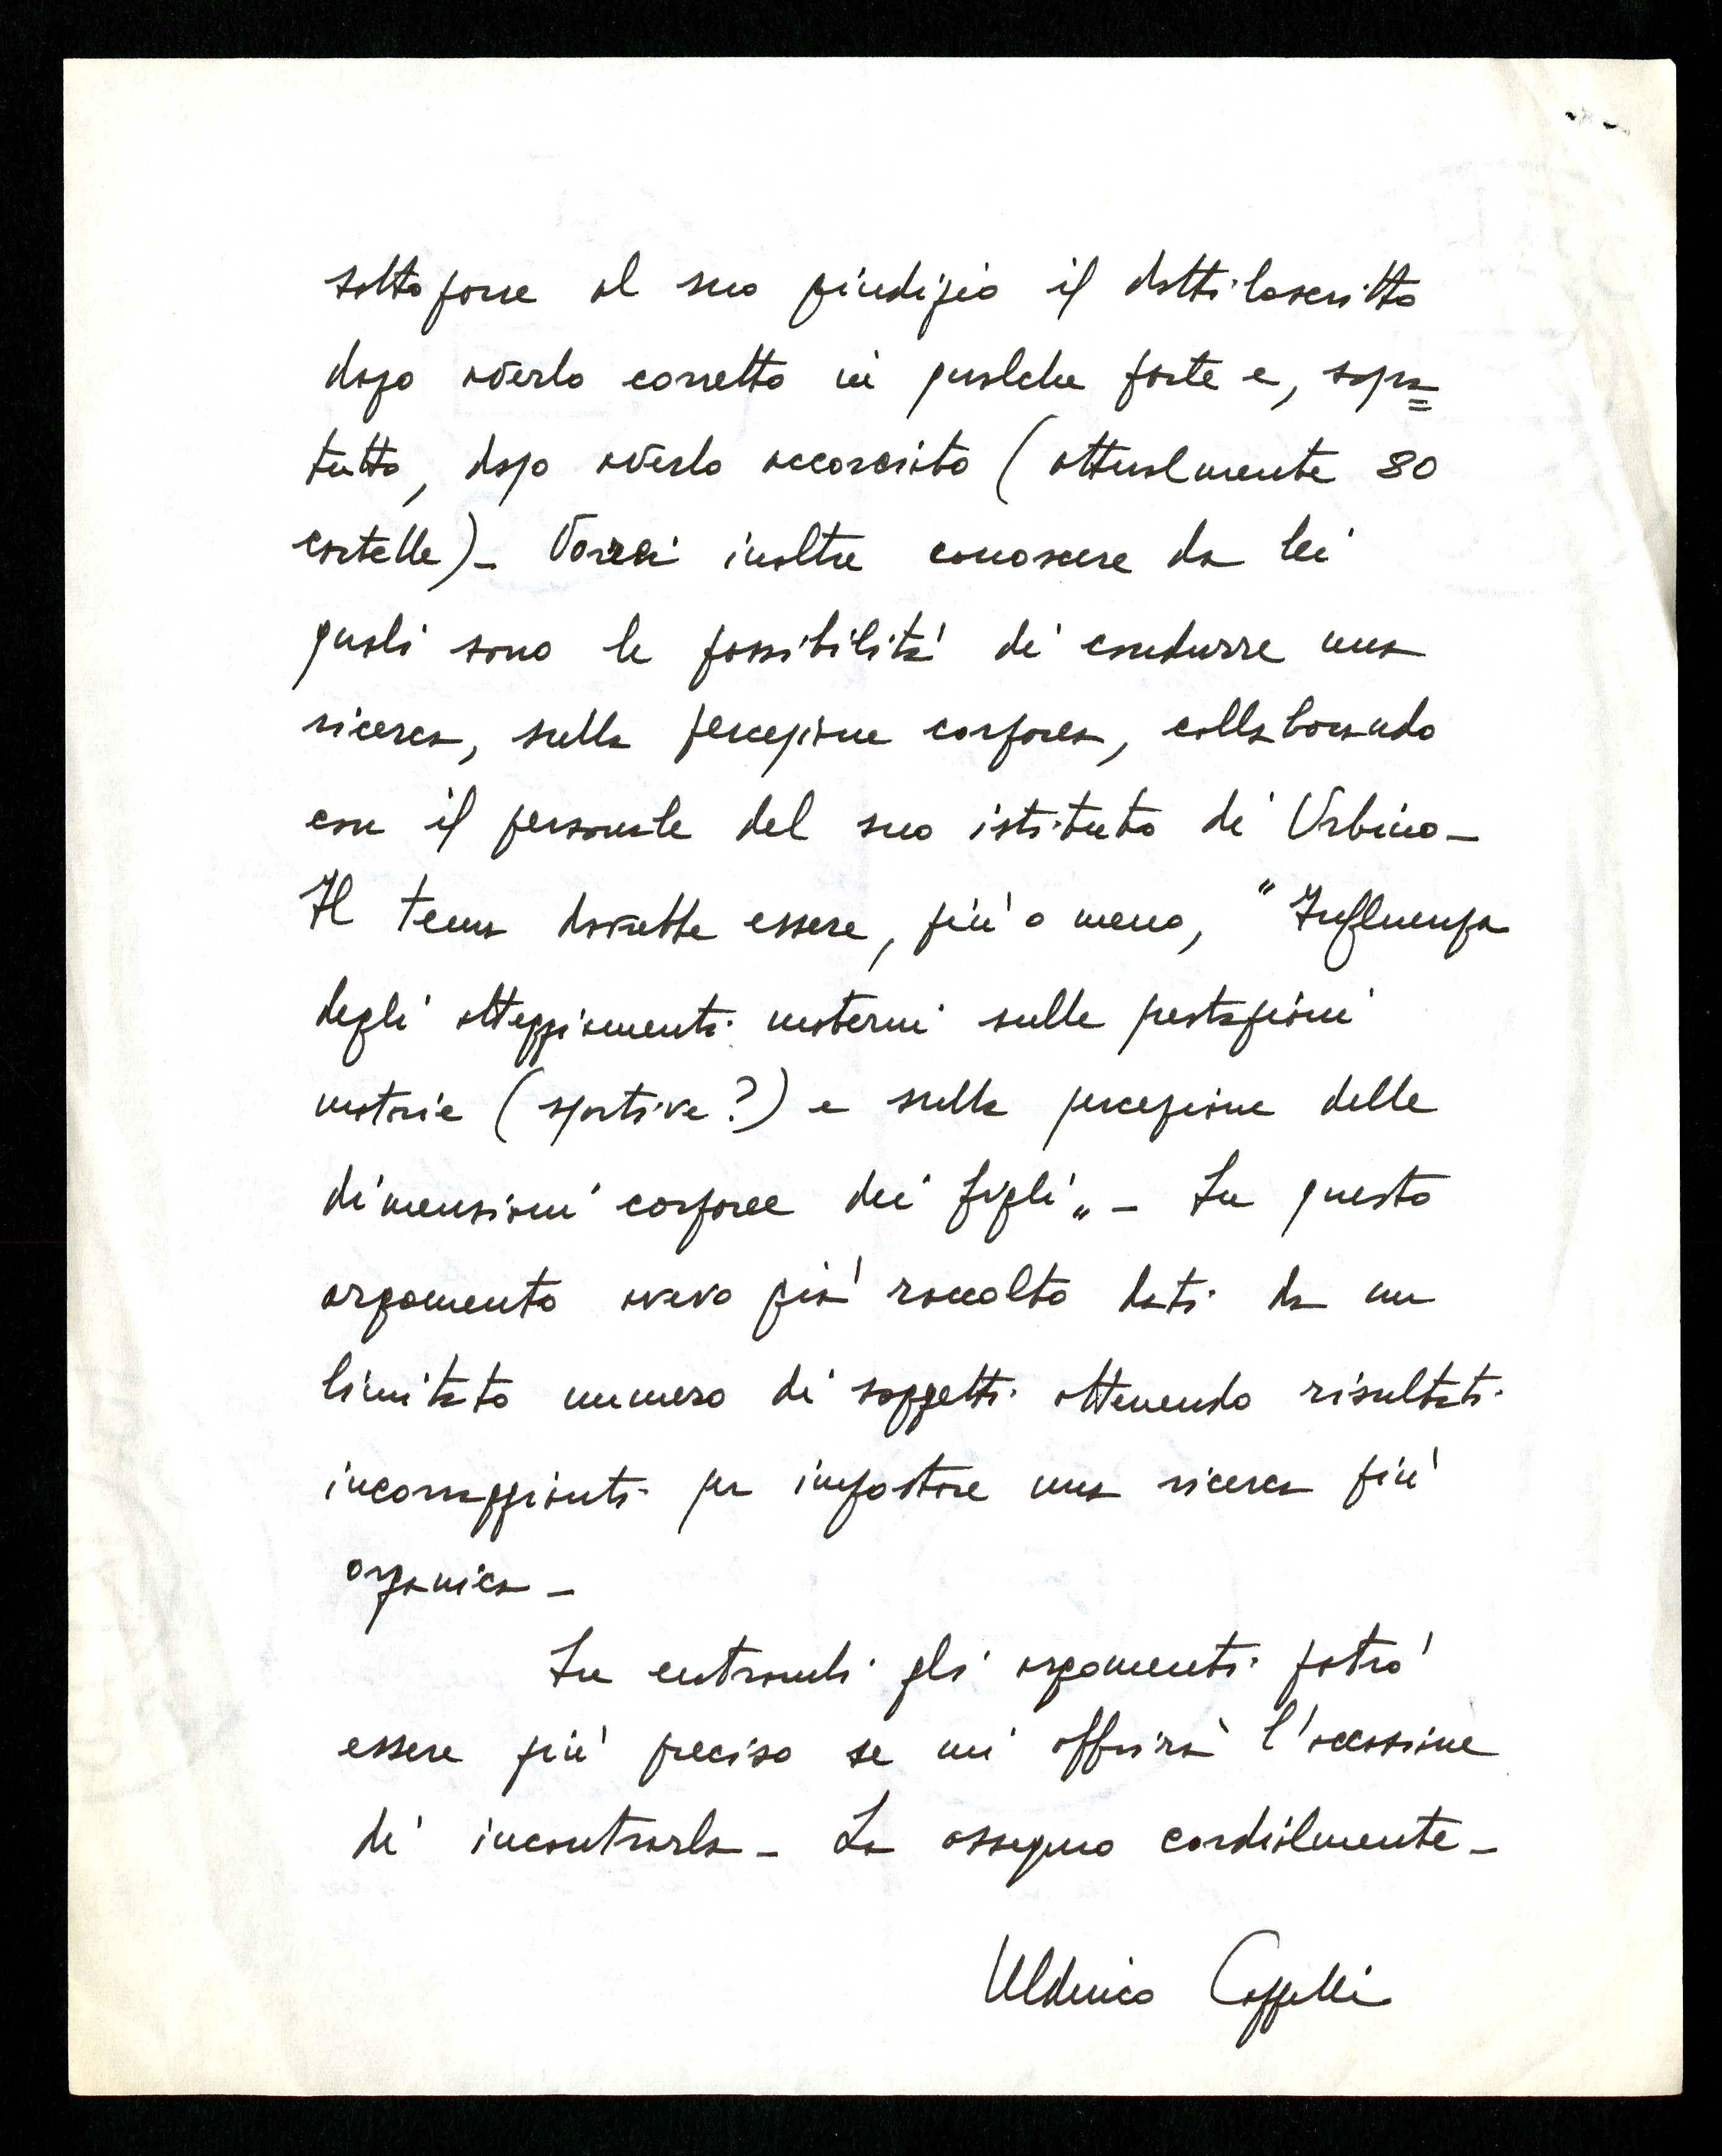 sottoporre al suo giudizio il dattiloscritto
dopo averlo corretto in qualche parte e, sopra=
tutto, dopo averlo accorciato (attualmente 80
cartelle)- Vorrei inoltre conoscere da lei
quali sono le possibilità di condurre una
ricerca, sulla percezione corporea, collaborando
con il personale del suo istituto di Urbino-
Il tema dovrebbe essere, più o meno, "Influenza
degli atteggiamenti materni sulle prestazioni
motorie (sportive?) e sulla percezione delle
dimensioni corporee dei figli" - Su questo
argomento avevo già raccolto dati da un
limitato numero di soggetti ottenendo risultati
incoraggianti per impostare una ricerca più
organica -
Su entrambi gli argomenti potrò
essere più preciso se mi offrirà l'occasione
di incontrarla - La ossequio cordialmente -
Ulderico Cappelli